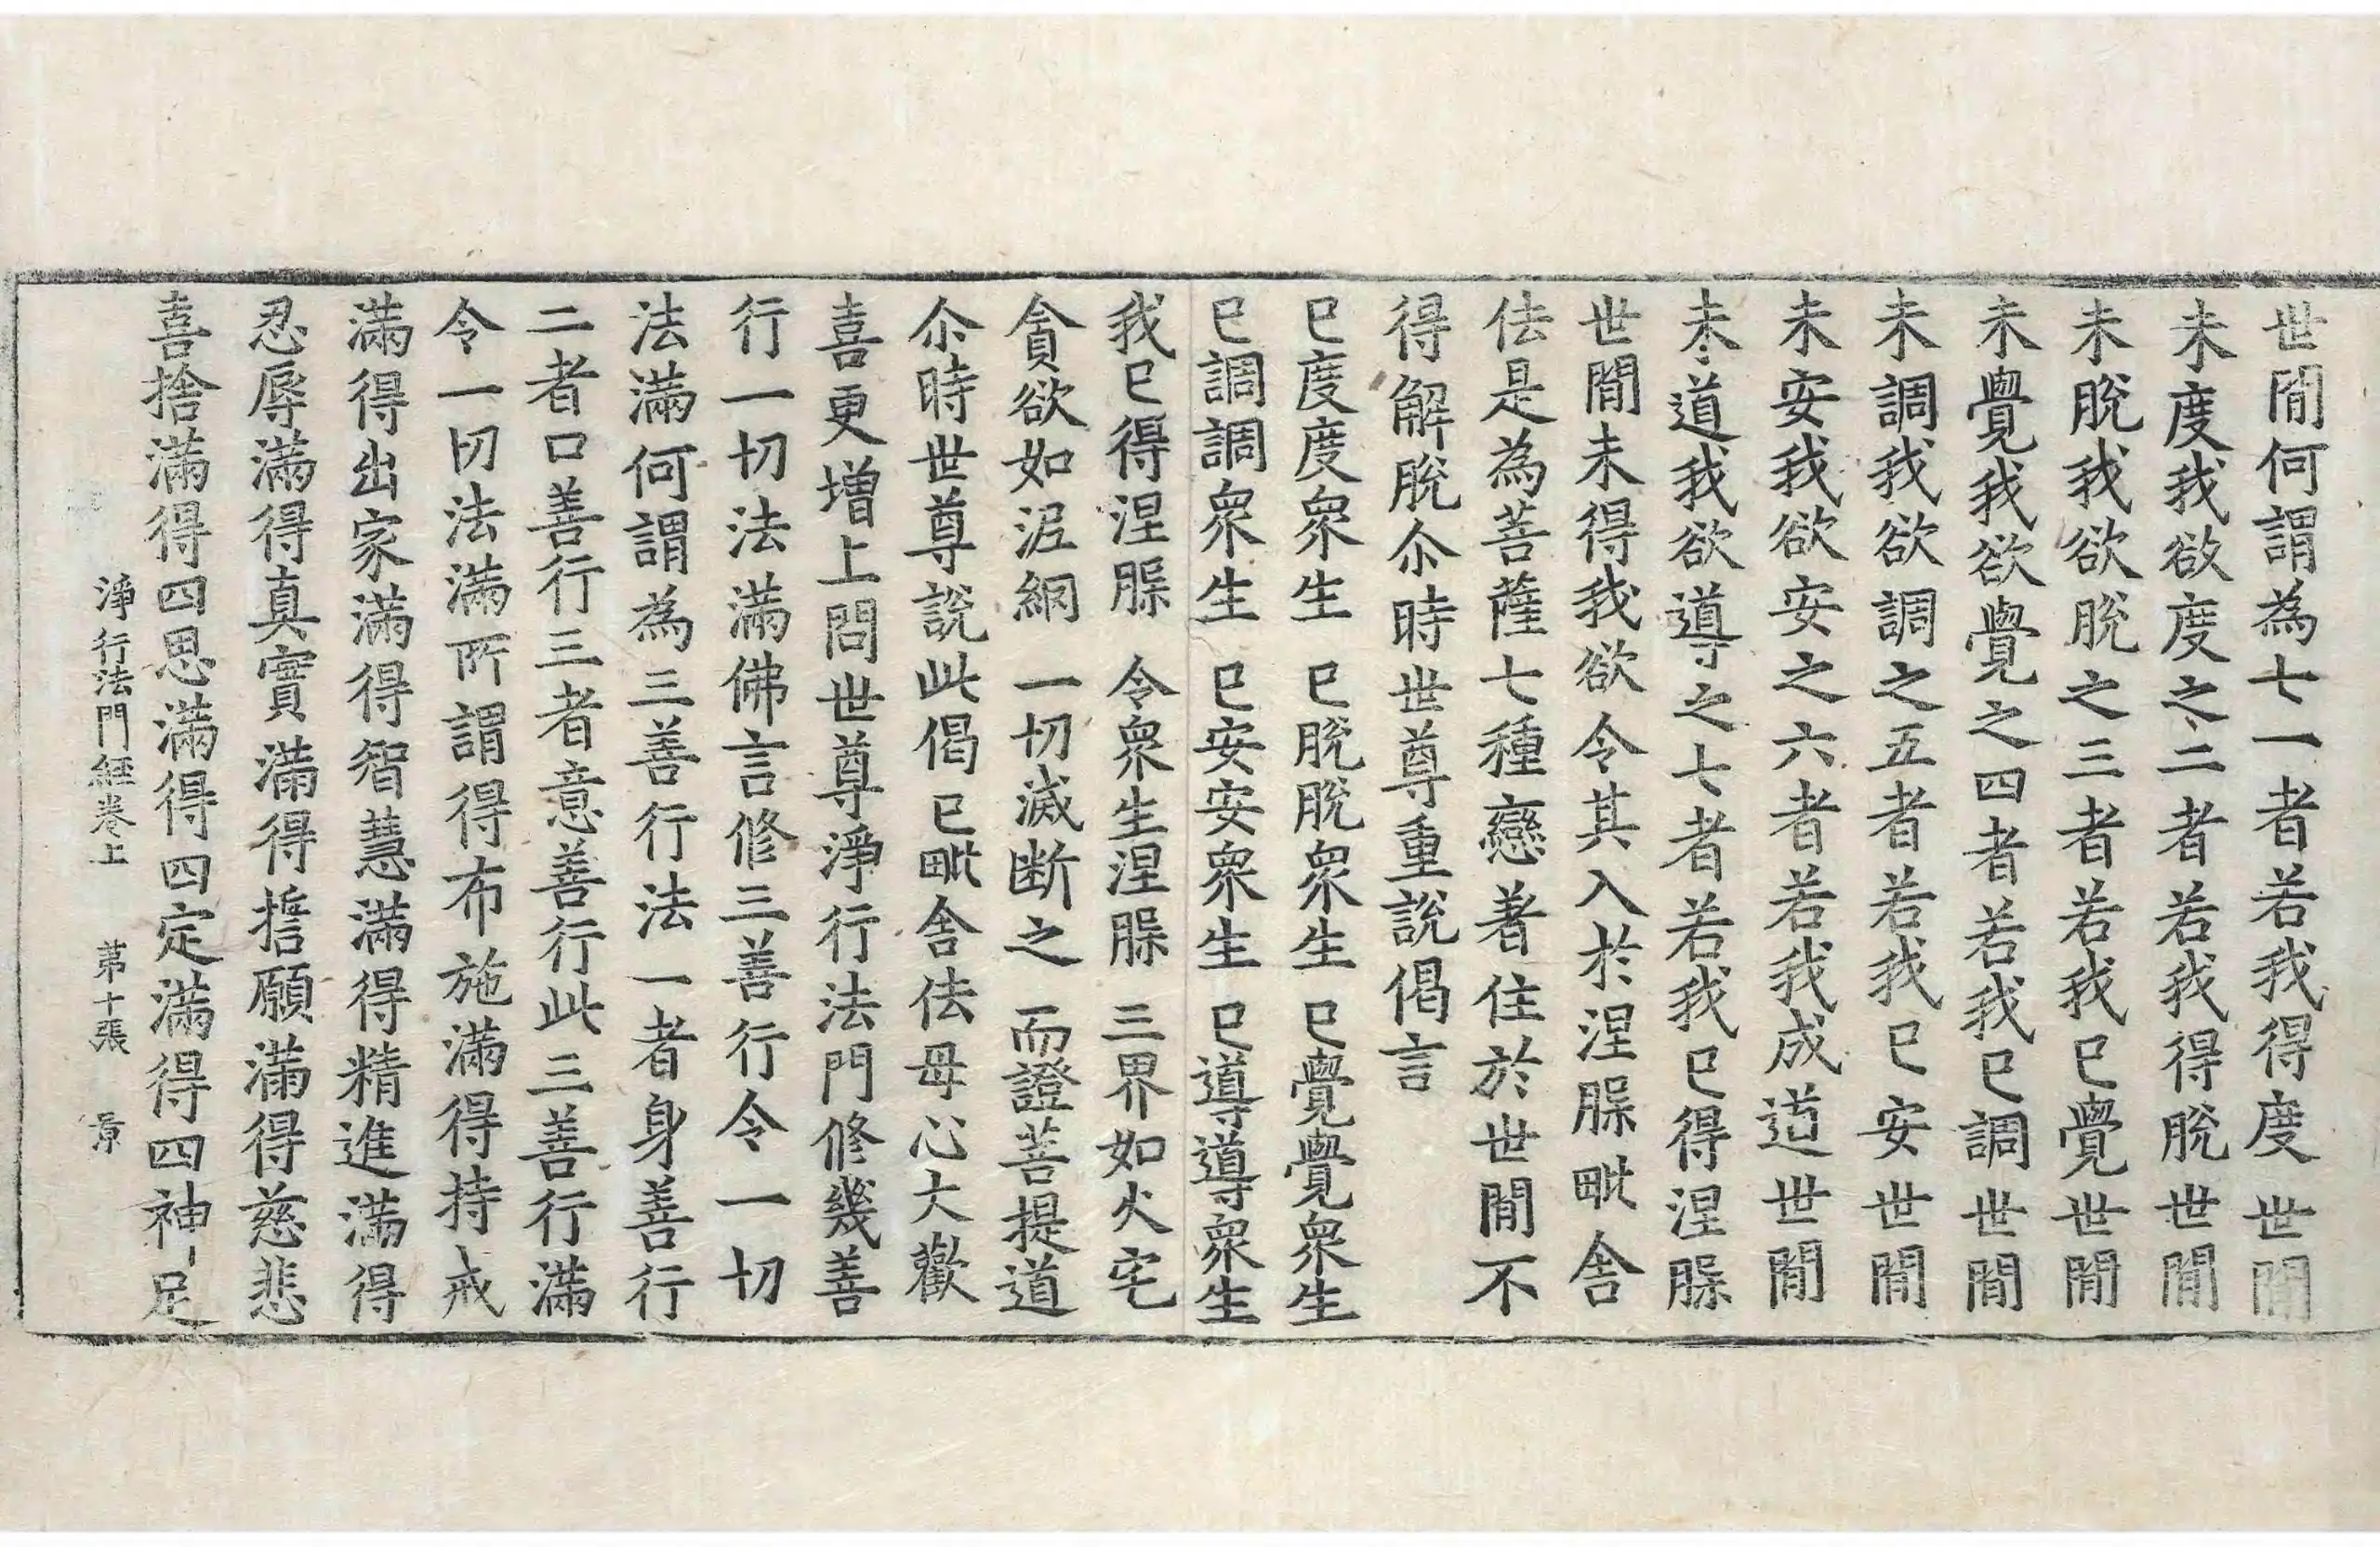 世間何謂為七一者若我得度世間
未度我欲度之二者若我得脫世間
未脫我欲脫之三者若我已覺世間
未覺我欲覺之四者若我已調世間
未調我欲調之五者若我已安世間
未安我欲安之六者若我成道世間
未道我欲導之七者若我已得涅脲
世間未得我欲令其入於涅脲毗舍
佉是為菩薩七種戀著住於世間不
得解脫尒時世尊重說偈言
已度度衆生　已脫脫衆生　已覺覺衆生
已調調衆生　已安安衆生　已導導衆生
我已得涅脲　令衆生涅脲　三界如火宅
貪欲如泥網　一切滅断之　而證菩提道
尒時世尊說此偈已毗舍佉母心大歡
喜更增上問世尊淨行法門修幾善
行一切法滿佛言修三善行令一切
法滿何謂為三善行法一者身善行
二者口善行三者意善行此三善行滿
令一切法滿所謂得布施滿得持戒
滿得出家滿得智慧滿得精進滿得
忍辱滿得真實滿得誓願滿得慈悲
喜捨滿得四恩滿得四定滿得四神足
淨行法門經卷上　第十張　景